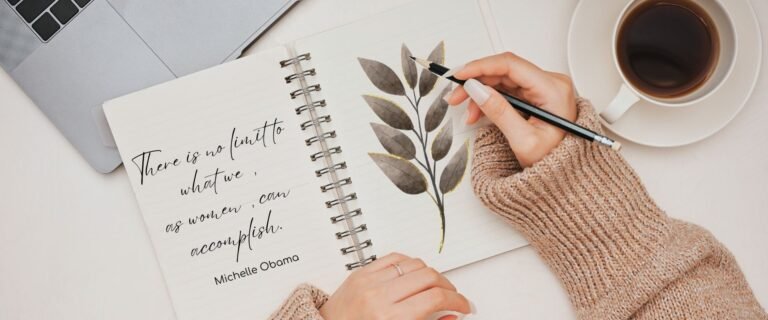 There is no limit to
what we ,
as women , can
accomplish.
Michelle Obama